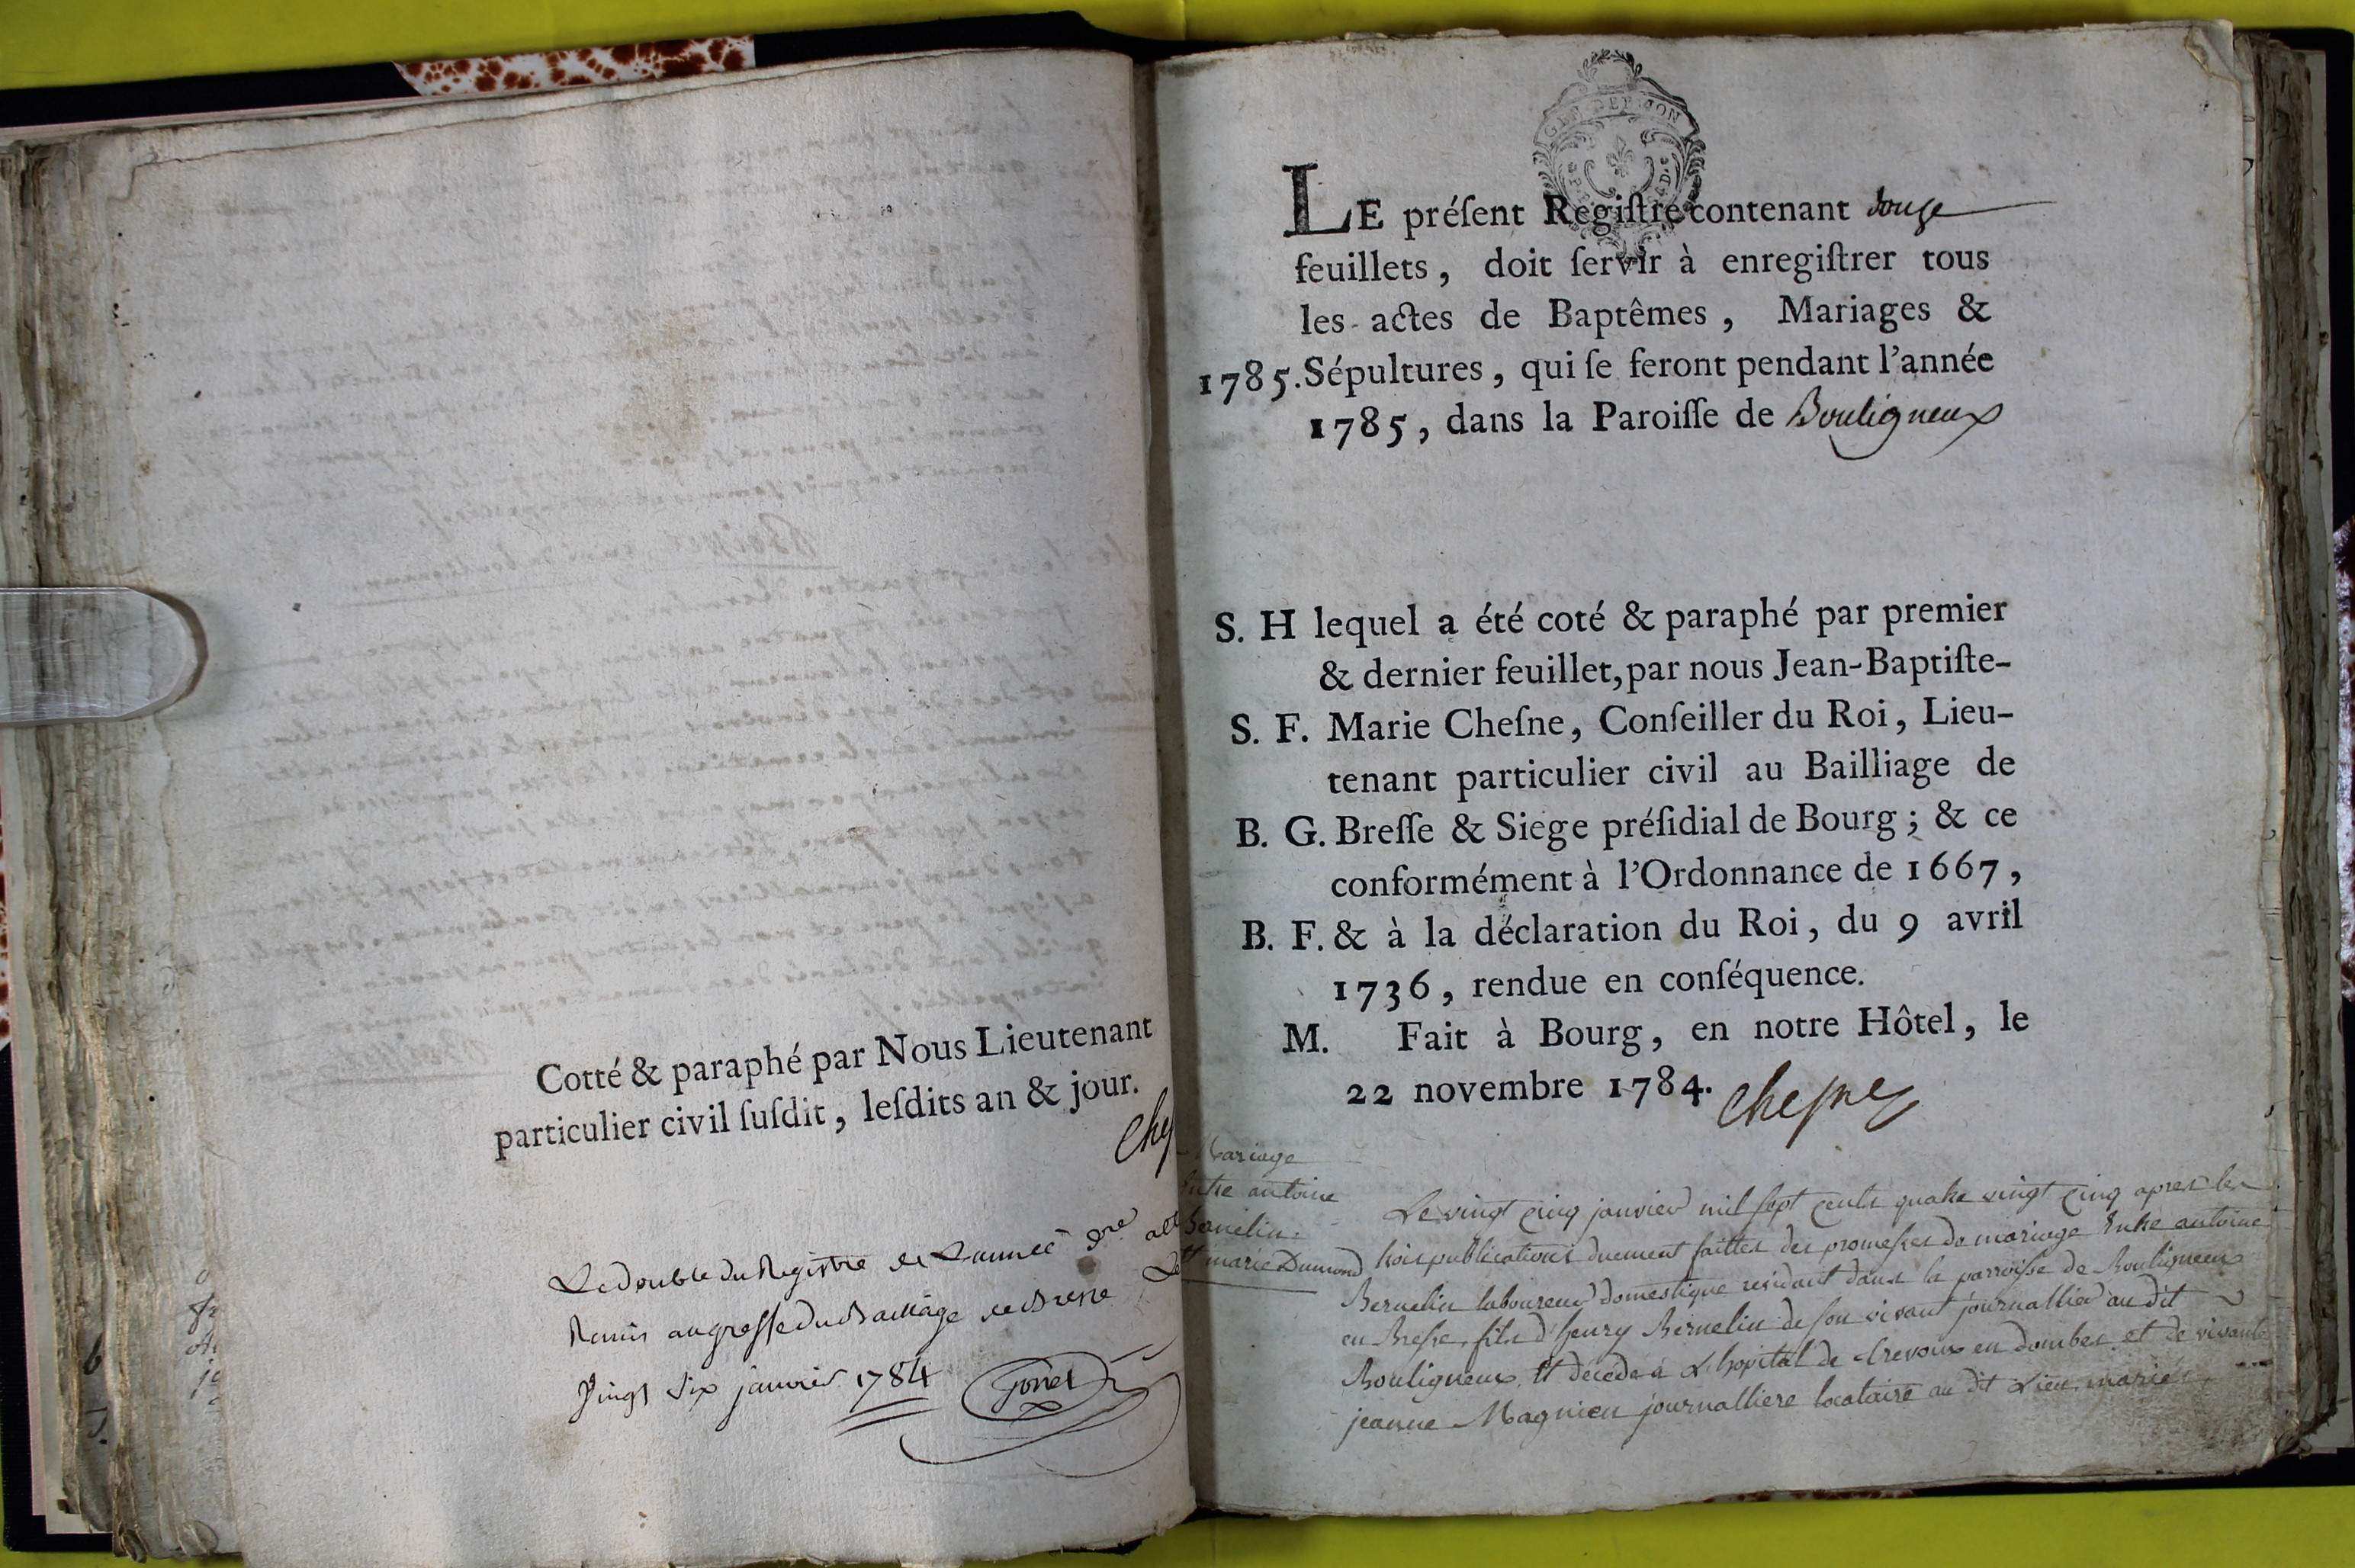 Cotté & paraphé par Nous Lieutenant
particulier civil ſuſdit, leſdits an & jour.
Che
Le double du Registre de L'année
Remis au greffe du Bailliage de Bresse
Vingt six janvier 1784
GEN DE DIJON
LE préſent Regiſtre contenant douze
feuillets, doit ſervir à enregiſtrer tous
les actes de Baptêmes, Mariages &
1785. Sépultures, qui ſe feront pendant l'année
1785, dans la Paroiſſe de Bouligneux
S. H lequel a été coté & paraphé par premier
& dernier feuillet, par nous Jean-Baptiſte-
S. F. Marie Cheſne, Conſeiller du Roi, Lieu-
tenant particulier civil au Bailliage de
B. G. Breſſe & Siege préſidial de Bourg; & ce
conformément à l'Ordonnance de 1667,
B. F. & à la déclaration du Roi, du 9 avril
1736, rendue en conſéquence.
M. Fait à Bourg, en notre Hôtel, le
22 novembre 1784. Chesne
Mariage
Entre antoine
Bernelin
et marie Dumond
Le vingt cinq janvier mil sept cents quatre vingt cinq apres les
trois publications duement faittes des promesses de mariage Entre antoine
Bernelin laboureur domestique residant dans la parroisse de Bouligneux
en Bresse, fils d'henry Bernelin de son vivant journallier au dit
Bouligneux, Et décédé a L'hopital de trevoux en dombes et de vivante
jeanne Magnien journalliere locataire au dit Lieu, mariés